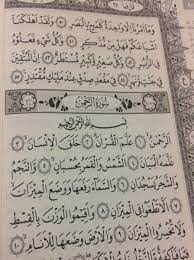 وَمَا أَمْرُنَا إِلَّا وَاحِدَةٌ كَلَمْحٍ بِالْبَصَرِ ۝٥٠ وَلَقَدْ أَهْلَكْنَا
أَشْيَاعَكُمْ فَهَلْ مِن مُّدَّكِرٍ ۝٥١ وَكُلُّ شَيْءٍ فَعَلُوهُ
فِي الزُّبُرِ ۝٥٢ وَكُلُّ صَغِيرٍ وَكَبِيرٍ مُّسْتَطَرٌ ۝٥٣ إِنَّ الْمُتَّقِينَ
فِي جَنَّاتٍ وَنَهَرٍ ۝٥٤ فِي مَقْعَدِ صِدْقٍ عِندَ مَلِيكٍ مُّقْتَدِرٍ ۝٥٥
سُورَةُ الرَّحْمَٰن
بِسْمِ اللَّهِ الرَّحْمَٰنِ الرَّحِيمِ
الرَّحْمَٰنُ ۝١ عَلَّمَ الْقُرْآنَ ۝٢ خَلَقَ الْإِنسَانَ ۝٣
عَلَّمَهُ الْبَيَانَ ۝٤ الشَّمْسُ وَالْقَمَرُ بِحُسْبَانٍ ۝٥ وَالنَّجْمُ
وَالشَّجَرُ يَسْجُدَانِ ۝٦ وَالسَّمَاءَ رَفَعَهَا وَوَضَعَ الْمِيزَانَ
۝٧ أَلَّا تَطْغَوْا فِي الْمِيزَانِ ۝٨ وَأَقِيمُوا الْوَزْنَ بِالْقِسْطِ
وَلَا تُخْسِرُوا الْمِيزَانَ ۝٩ وَالْأَرْضَ وَضَعَهَا لِلْأَنَامِ ۝١٠